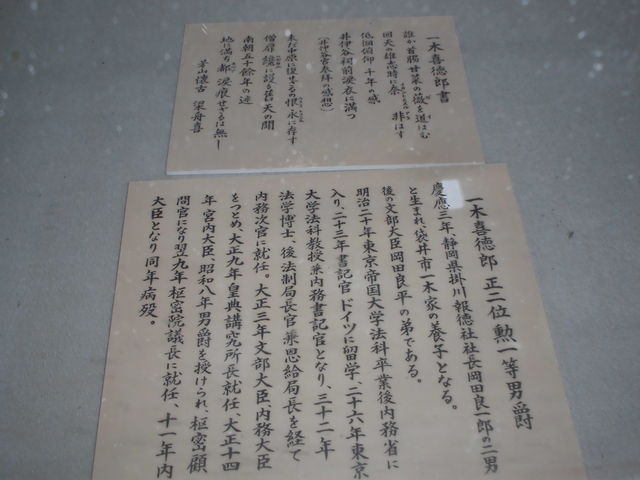 一木喜徳郎書
誰か首陽
菜の薇を道はむ
回天の雄志時に余
非はす
低徊俯仰千年の感
井伊谷祠前涙衣に満つ
(井伊谷宮奉拝の感想)
未だ中原に復せざるの恨永に存す
僧房
蒼天の閽
南朝五十餘年の迹
地に満ち都
涙痕せざるは無し
芳山懐古 梁舟喜
一木喜徳郎 正二位 勲一等男爵
慶應三年、静岡県掛川報徳社社長岡田良一郎の二男
と生まれ、袋井市一木家の養子となる。
後の文部大臣岡田良平の弟である。
明治二十年東京帝国大学法科卒業後内務省に
入り、二十三年書記官ドイツに留学、二十六年東京
大学法科教授兼内務書記官となり、三十二年
法学博士、後法制局長官兼恩給局長を経て
内務次官に就任。大正三年文部大臣、内務大臣
をつとめ、大正九年皇典講究所長就任、大正十四
年宮内大臣、昭和八年男爵を授けられ、枢密顧
問官になり翌九年枢密院議長に就任、十一年内
大臣となり同年病殁。